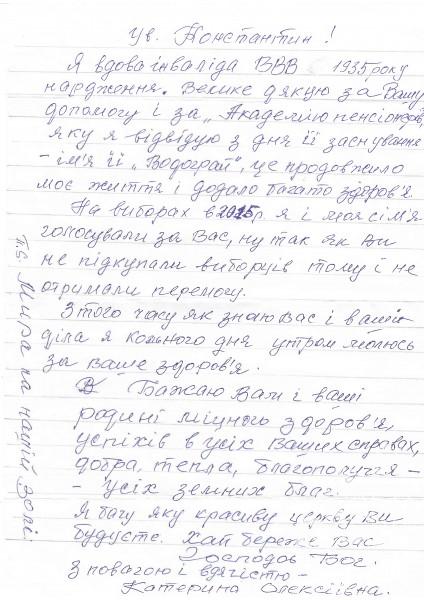 Ув. Константин!
Я вдова інваліда ВВВ 1935 року
нардження. Велике дякую за Вашу
допомогу і за „Академію пенсіонерів,
яку я відвідую з дня її заснування
- ім'я її „Водограй", це продовжило
моє життя і додало багато здоров'я.
На виборах в 2015р я і моя сім'я
голосували за Вас, ну так як Ви
не підкупали виборців тому і не
отримали перемогу.
З того часу як знаю Вас і ваші
діла я кожного дня утром молюсь
за ваше здоров'я.
Бажаю Вам і ваші
родині міцного здоров'я,
успіхів в усіх Ваших справах,
добра, тепла, благополуччя -
- усіх земних благ.
Я бачу яку красиву церкву Ви
будуєте. Хай береже Вас
Господь Бог.
З повагою і вдячістю -
Катерина Олексіївна.
P.S. Мира на нашій землі.